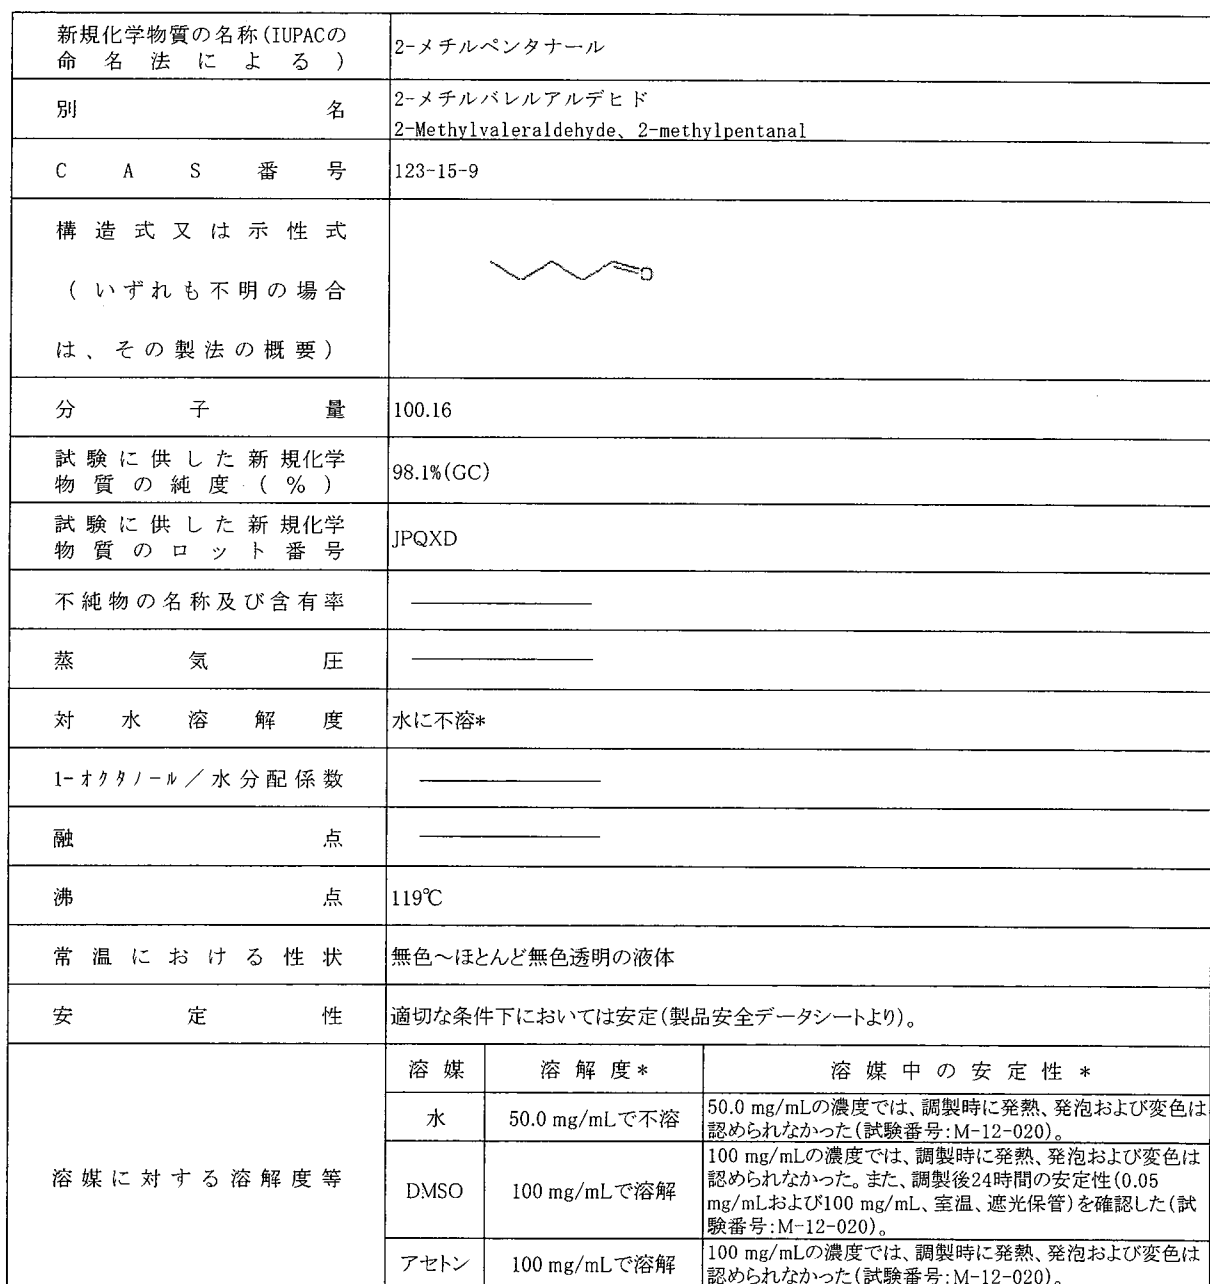 新規化学物質の名称(IUPACの
命名法による)
2-メチルペンタナール
別名
2-メチルバレルアルデヒド
2-Methylvaleraldehyde、2-methylpentanal
CAS番号
123-15-9
構造式又は示性式
(いずれも不明の場合
は、その製法の概要)
O
分子量
100.16
試験に供した新規化学
物質の純度(%)
98.1%(GC)
試験に供した新規化学
物質のロット番号
JPQXD
不純物の名称及び含有率
蒸気圧
対水溶解度
水に不溶*
1-オクタノール/水分配係数
融点
沸点
119℃
常温における性状
無色～ほとんど無色透明の液体
安定性
適切な条件下においては安定(製品安全データシートより)。
溶媒に対する溶解度等
溶媒 溶解度* 溶媒中の安定性*
水 50.0 mg/mLで不溶
50.0 mg/mLの濃度では、調製時に発熱、発泡および変色は
認められなかった(試験番号:M-12-020)。
DMSO 100 mg/mLで溶解
100 mg/mLの濃度では、調製時に発熱、発泡および変色は
認められなかった。また、調製後24時間の安定性(0.05
mg/mLおよび100 mg/mL、室温、遮光保管)を確認した(試
験番号:M-12-020)。
アセトン 100 mg/mLで溶解
100 mg/mLの濃度では、調製時に発熱、発泡および変色は
認められなかった(試験番号:M-12-020)。